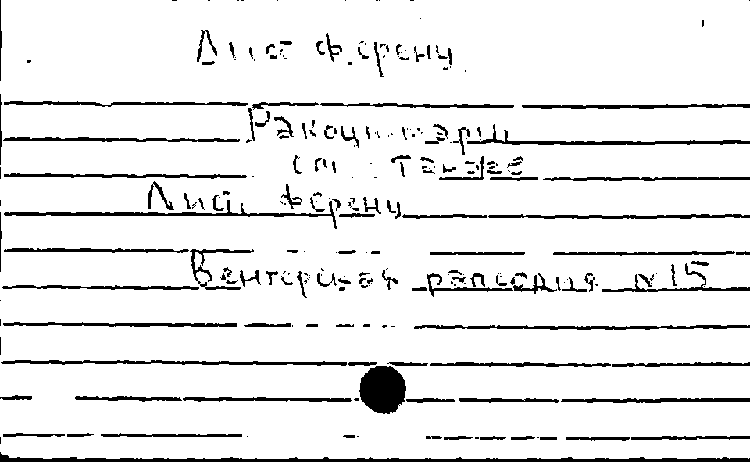 Лист Ференц
Ракоци-марш
см. также
Лист, Ференц
Венгерская рапсодия №15